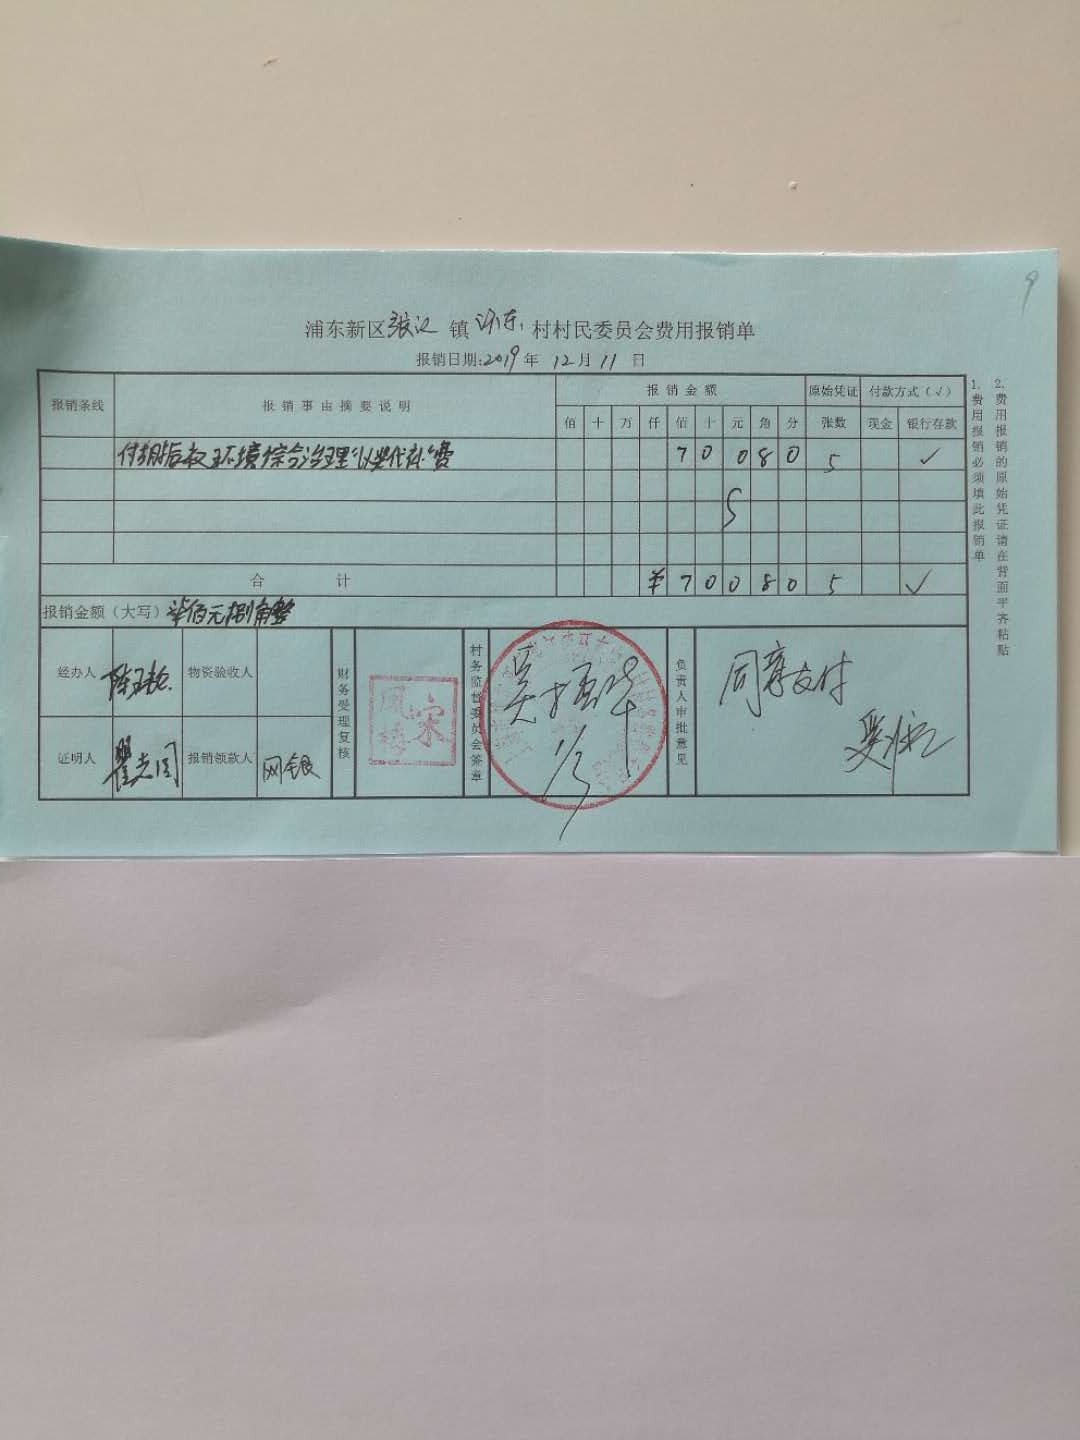 9
浦东新区张江镇 村村民委员会费用报销单
报销日期:2019年12月11日
报销条线 报销事由摘要说明 报销金额 原始凭证 付款方式(√)
佰 十 万 仟 佰 十 元 角 分 张数 现金 银行存款
环境综合治理 费 7 0 0 8 0 5 √
合计 ¥ 7 0 0 8 0 5 √
报销金额(大写) 柒佰元捌角整
经办人 物资验收人
证明人 瞿志同 报销领款人 网银
财务受理复核
宋
凤
村务监督委员会签章
负责人审批意见
同意支付
1.费用报销必须填此报销单
2.费用报销的原始凭证请在背面平齐粘贴